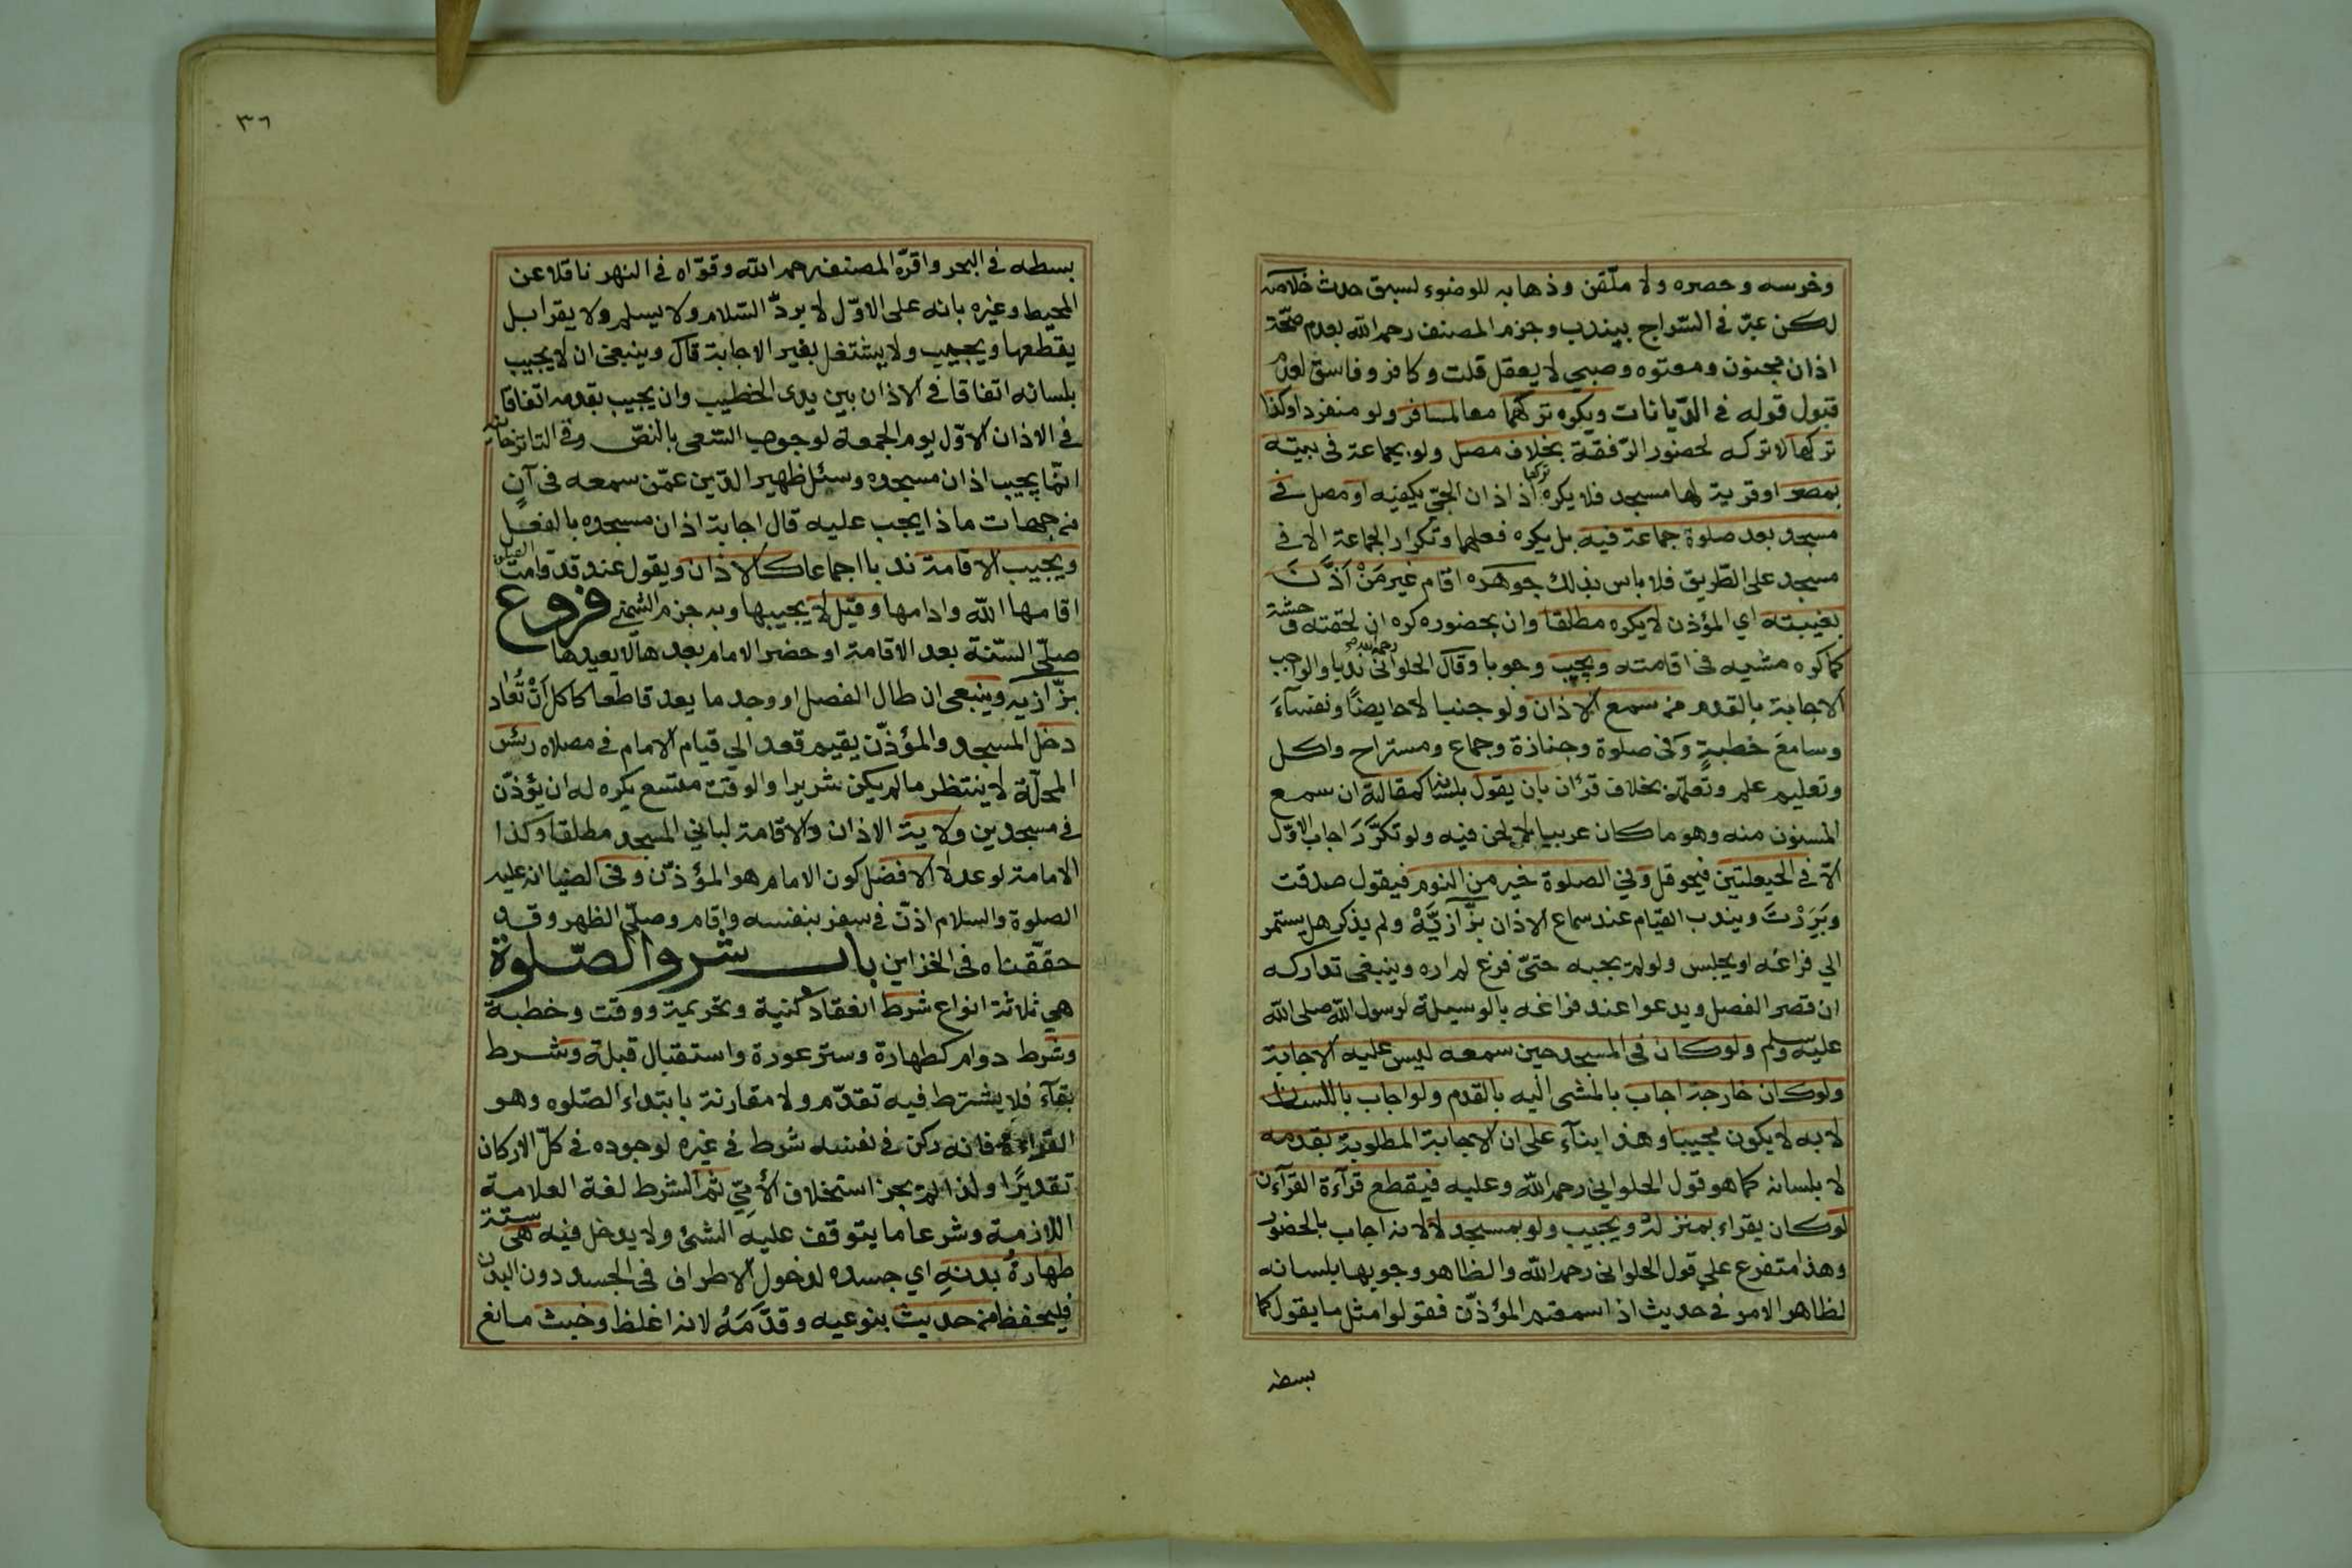 وخرسه وحصره ولا ملقن وذهابه للوضوء لسبق حدث خلاصه
لكن عبّر في السّراج بيندب وجزم المصنف رحمه الله بعدم صحّة
اذان مجنون ومعتوه وصبي لا يعقل قلت وكافر وفاسق لعدم
قبول قوله في الدّيانات ويكره تركهما معا لمسافر ولو منفردا وكذا
تركها لا تركه لحضور الرّفقة بخلاف مصل ولو بجماعة في بيته
بمصر او قرية لها مسجد فلا يكره تركهما اذ اذان الحيّ يكفيه او مصل في
مسجد بعد صلوة جماعة فيه بل يكره فعلهما وتكرار الجماعة الا في
مسجد على الطّريق فلا باس بذلك جوهره اقام غير مَنْ اَذَّنَ
بغيبته اي المؤذن لا يكره مطلقا وان بحضوره كره ان لحقته وحشة
كما كره مشيه في اقامته ويجيب وجوبا وقال الحلواني رحمه الله ندبا والواجب
الاجابة بالقدم من سمع الاذان ولو جنبا لا حايضًا ونفساءَ
وسامعَ خطبةٍ وفي صلوة وجنازة وجماع ومستراح واكل
وتعليم علم وتعلّمه بخلاف قرٰان بان يقول بلسانه كمقالة ان سمع
المسنون منه وهو ما كان عربيا لا لحن فيه ولو تكرَّرَ اجاب الاوّل
الّا في الحيعلتين فيحوقل وفي الصلوة خير من النوم فيقول صدقت
وبَرِرْتَ ويندب القيام عند سماع الاذان بزّازيَّهْ ولم يذكر هل يستمر
الي فراغه او يجلس ولو لم يجبه حتىّ فرغ لم اره وينبغي تداركه
ان قصر الفصل ويدعوا عند فراغه بالوسيلة لرسول الله صلى الله
عليه وسلم ولو كان في المسجد حين سمعه ليس عليه الاجابة
ولو كان خارجة اجاب بالمشى اليه بالقدم ولو اجاب باللسان
لا به لا يكون مجيبا وهذا بناء على ان الاجابة المطلوبة بقدمه
لا بلسانه كما هو قول الحلواني رحمه الله وعليه فيقطع قرآءة القرآن
لو كان يقراء بمنزله ويجيب ولو بمسجد لا لانه اجاب بالحضور
وهذا متفرع علي قول الحلواني رحمه الله والظاهر وجوبها بلسانه
لظاهر الامر في حديث اذا سمعتم المؤذّن فقولوا مثل ما يقول كما
بسطه
٣٦
بسطه في البحر واقرّه المصنف رحمه الله وقوّاه في النهر ناقلا عن
المحيط وغيره بانه على الاوّل لا يردّ السّلام ولا يسلم ولا يقرا بل
يقطعها ويجيب ولا يشتغل بغير الاجابة قال وينبغي ان لا يجيب
بلسانه اتفاقا في الاذان بين يدى الخطيب وان يجيب بقدمه اتفاقا
في الاذان الاوّل يوم الجمعة لوجوب السّعى بالنصّ وفي التاترخانيه
انّما يجيب اذان مسجده وسئل ظهير الدّين عمّن سمعه في آن
من جهات ماذا يجب عليه قال اجابة اذان مسجده بالفعل
ويجيب الاقامة ندبا اجماعا كالاذان ويقول عند قد قامت الصلوة
اقامها الله وادامها وقيل لا يجيبها وبه جزم الشمني فروع
صلّى السّنة بعد الاقامة او حضر الامام بعدها لا يعيدها
بزّازيه وينبغى ان طال الفصل او وجد ما يعد قاطعا كاكل اَنْ تُعاد
دخل المسجد والمؤذّن يقيم قعد الي قيام الامام في مصلاه رئيس
المحلّة لا ينتظر ما لم يكن شريرا والوقت متسع يكره له ان يؤذّن
في مسجدين ولاية الاذان والاقامة لباني المسجد مطلقا وكذا
الامامة لو عدلا الافضل كون الامام هو المؤذّن وفي الضيا انه عليه
الصلوة والسلام اذّن في سفر بنفسه واقام وصلّى الظهر وقد
حققناه في الخزاين باب شروط الصّلوة
هي ثلاثة انواع شرط انعقاد كنية وتحريمة ووقت وخطبة
وشرط دوام كطهارة وستر عورة واستقبال قبلة وشرط
بقآء فلا يشترط فيه تقدّم ولا مقارنة بابتداء الصّلوه وهو
القراءة فانه ركن في نفسه شرط في غيره لوجوده في كلّ الاركان
تقديرًا ولذا لم يجز استخلاف الأمِيّ ثم الشرط لغة العلامة
اللازمة وشرعا ما يتوقف عليه الشئ ولا يدخل فيه هى ستة
طهارةُ بدنهِ اي جسده لدخول الاطراف في الجسد دون البدن
فليحفظ من حديث بنوعيه وقدَّمَهُ لانه اغلظ وخبث مانع